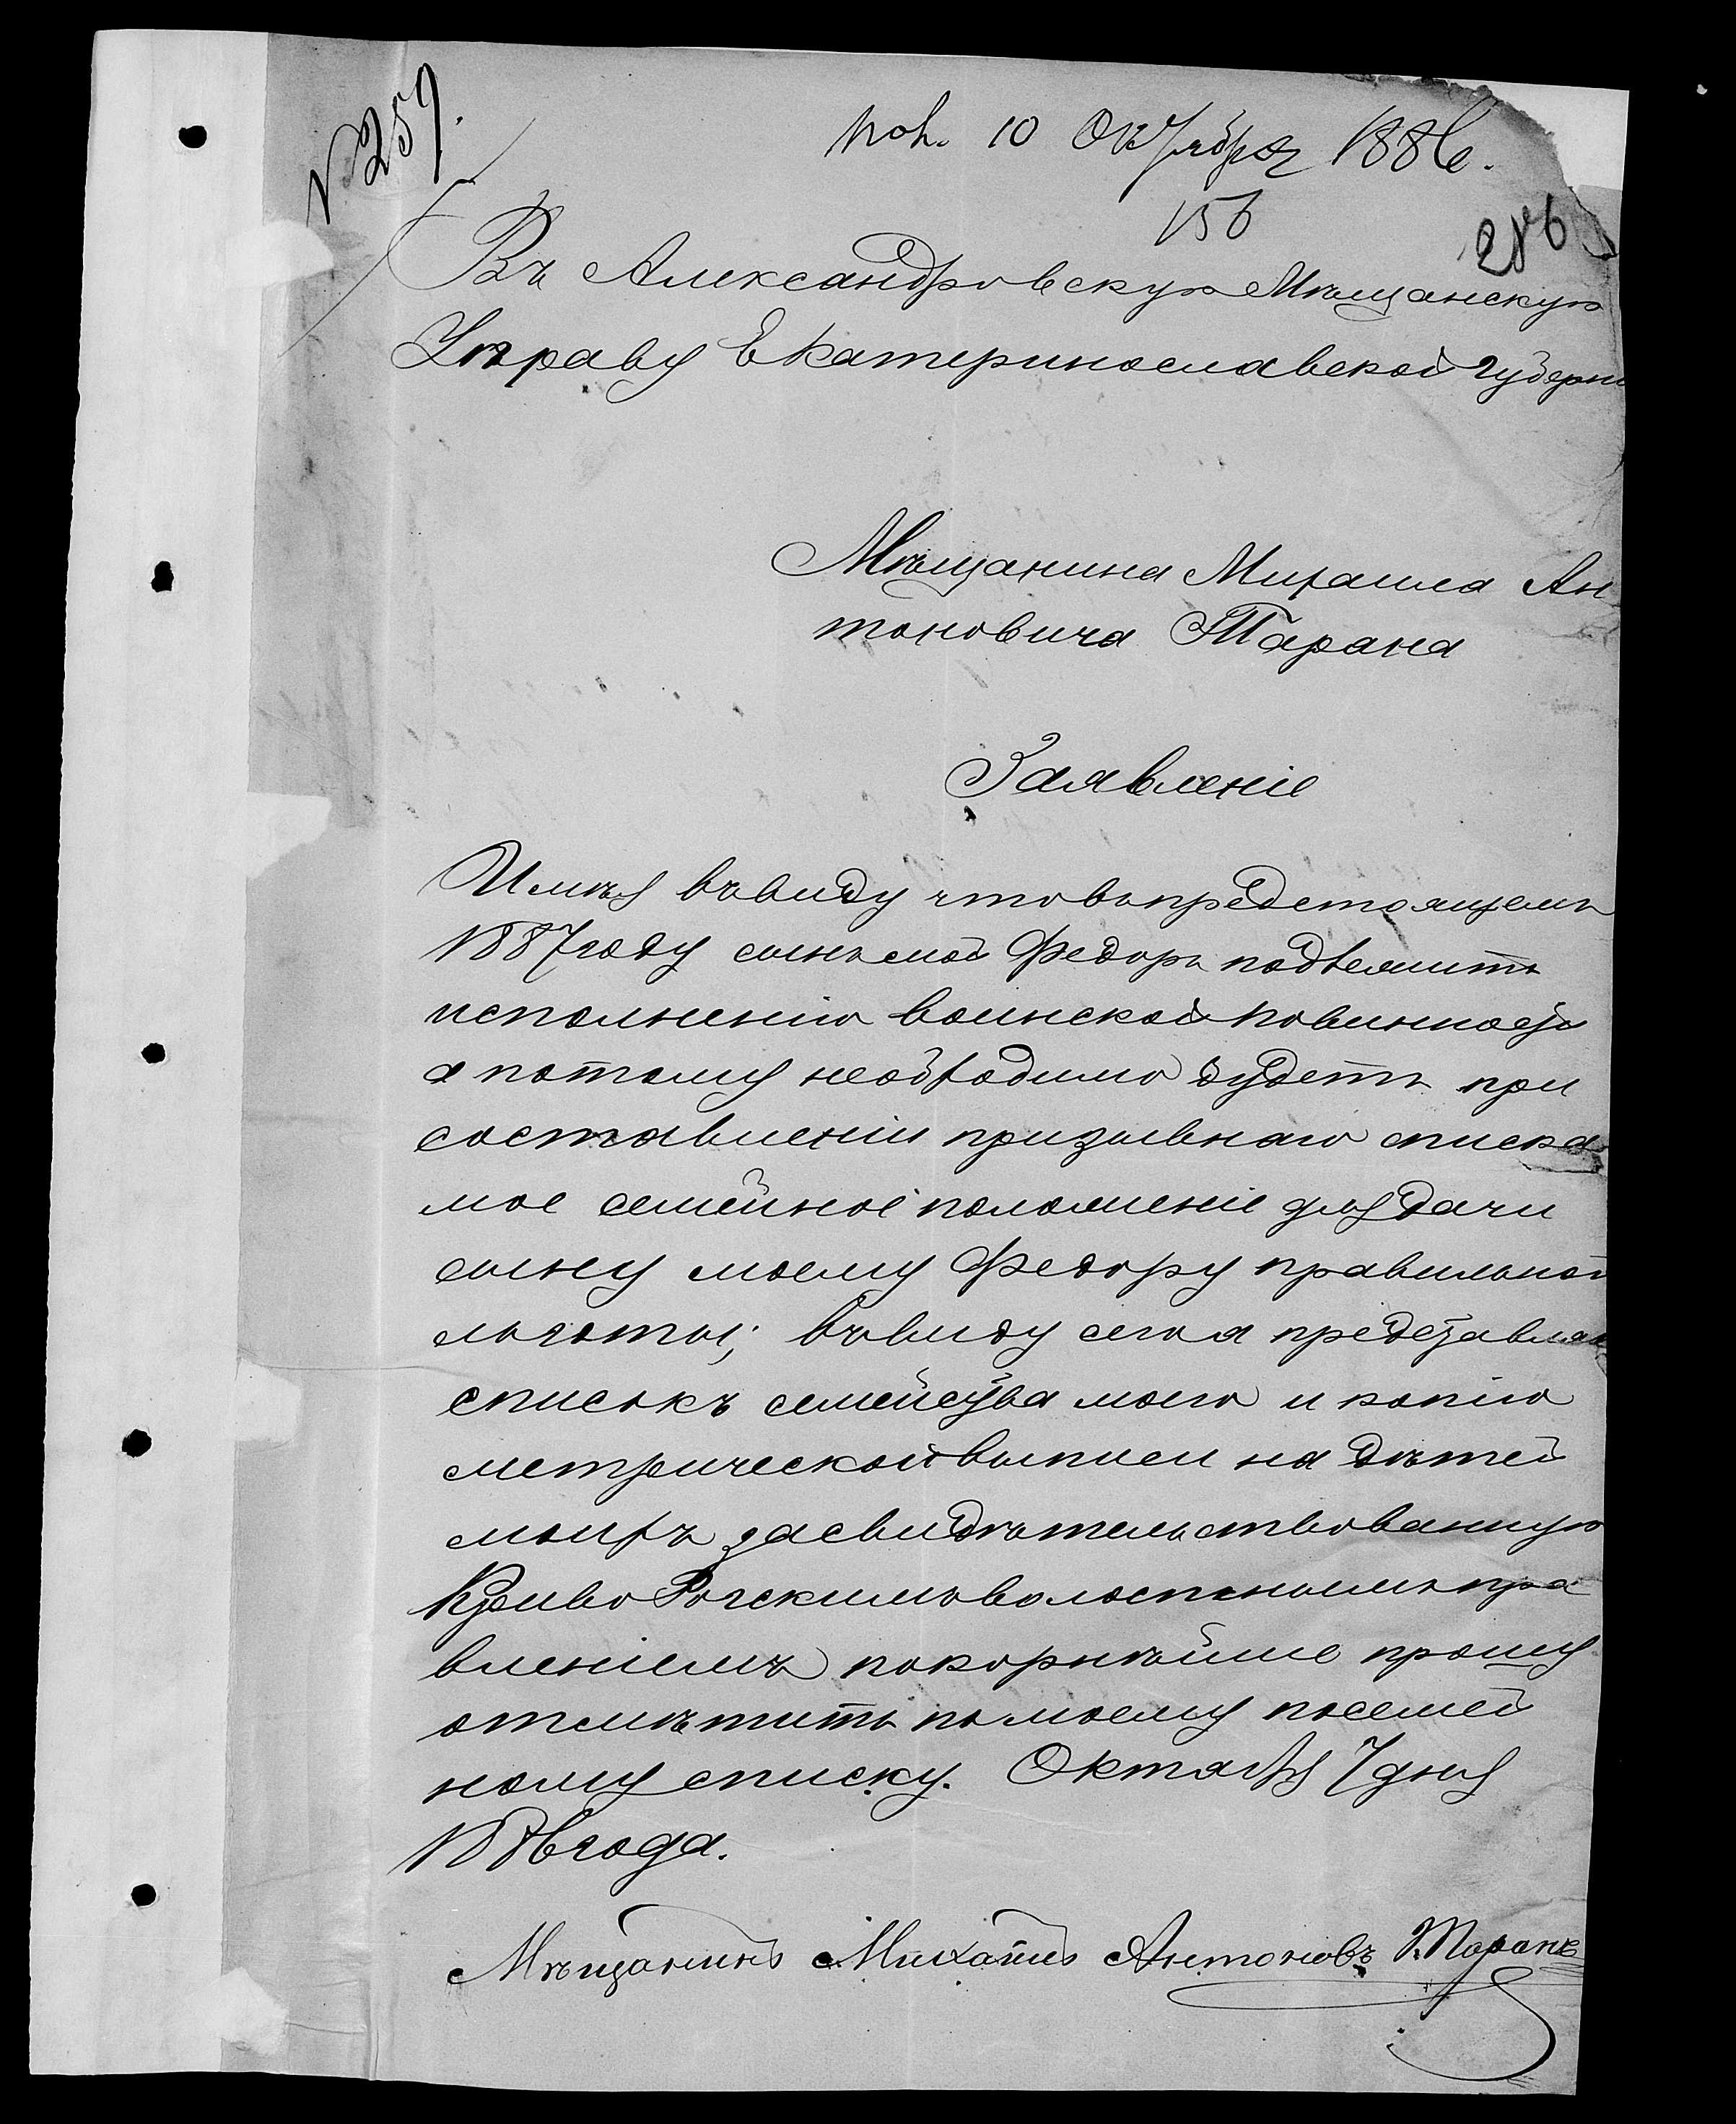 № 259.
Пол. 10 Октября 1886 г.
156
Въ Александровскую Мѣщанскую
Управу Екатеринославской губерн
Мѣщанина Михаила Ан
тоновича Тарана
Заявленіе
Имѣя въвиду что въ предстоящемъ
1887 году сынъ мой Федоръ подлежитъ
исполненію воинской повинности
а потому необходимо будетъ при
составленіи призывнаго списка
мое семейное положеніе для дачи
сыну моему Федору правильной
льготы; въвиду сего я представляю
списокъ семейства моего и копію
метрической выписи на дѣтей
моихъ засвидѣтельствованную
Криво Рогскимъ волостнымъ пра
вленіемъ покорнѣйше прошу
отмѣтить по моему посемей
ному списку. Октября 7 дня
1886 года.
Мѣщанинъ Михаилъ Антоновъ Таранъ